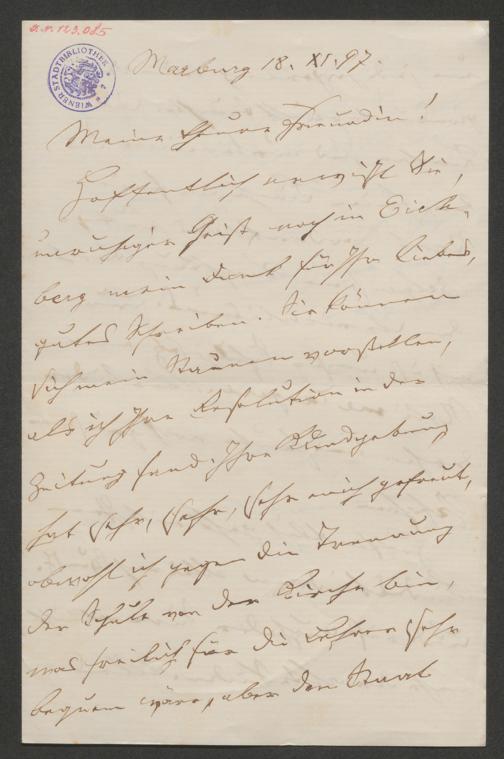 H.N. 123.085
WIENER STADTBIBLIOTHEK
Marburg 18. XI. 97.
Meine theure Freundin!
Hoffentlich erwischt Sie,
unruhiger Geist, noch in Eich-
berg mein Dank für Ihr liebes,
gutes Schreiben. Sie können
sich mein Staunen vorstellen,
als ich Ihre Resolution in der
Zeitung fand. Ihre Kundgebung
hat sehr, sehr, sehr mich gefreut,
obwohl ich gegen die Trennung
der Schule von der Kirche bin,
was freilich für die Lehrer sehr
bequem wäre, aber den Staat